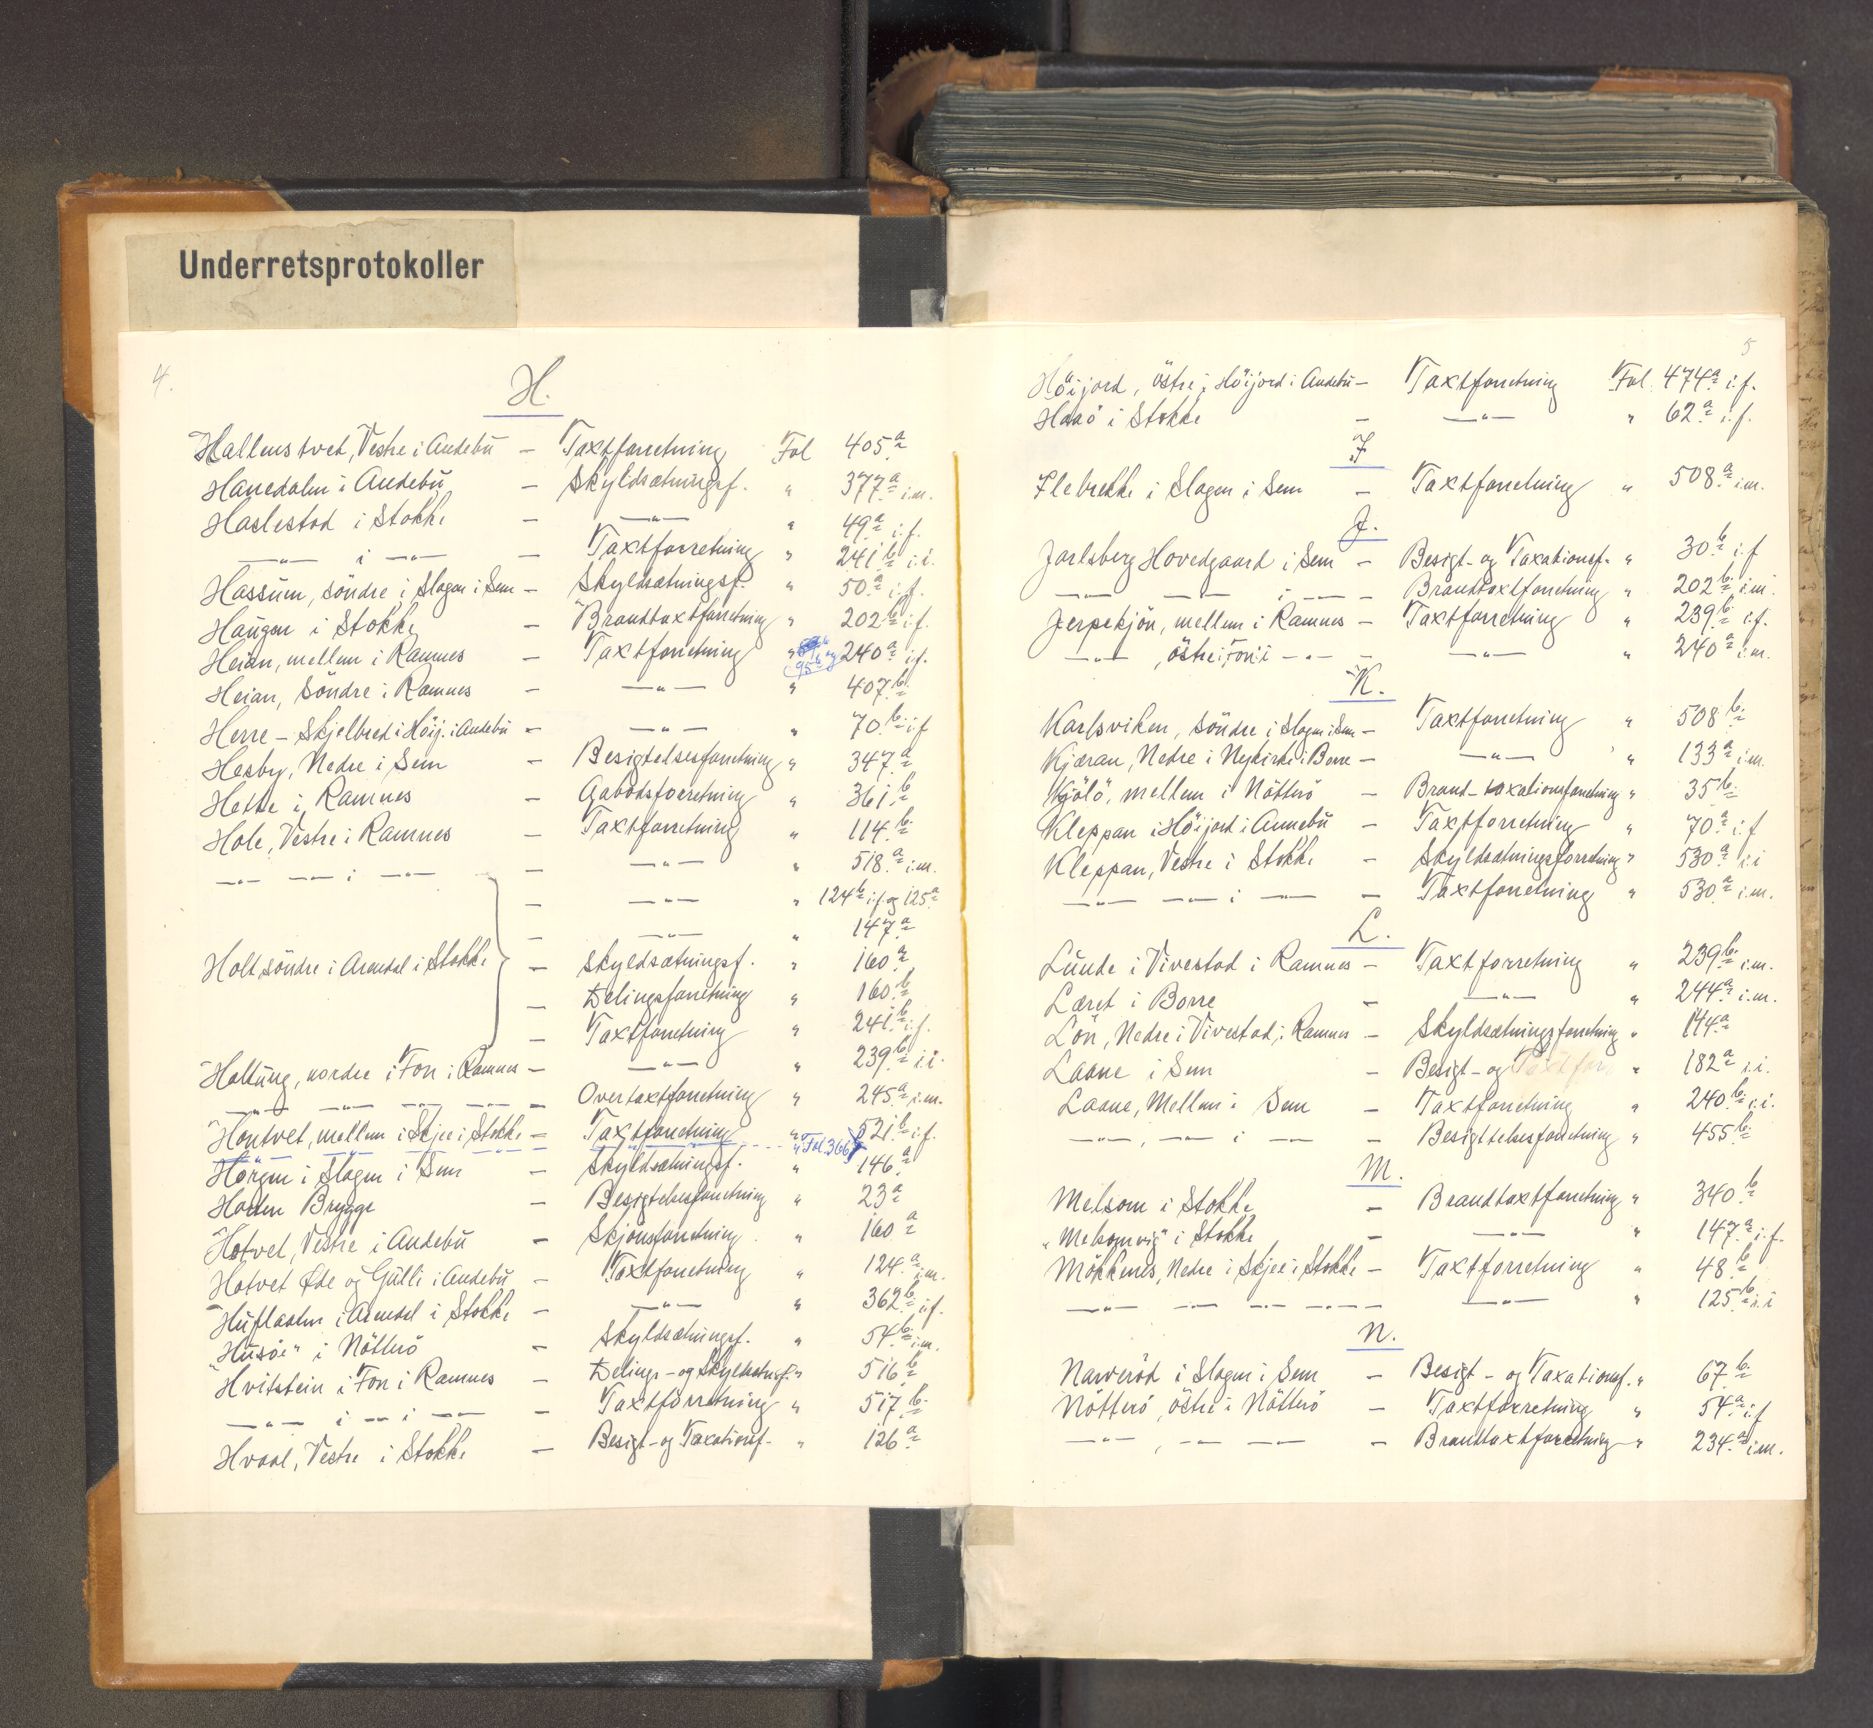 Underretsprotokoller
4.
H.
Hallenstvet, Vestre i Andebu — Taxtforretning Fol 405 a
Hanedalen i Andebu — Skyldsætningsf. " 377 a i.m.
Haslestad i Stokke — —"— " 49 a i.f.
—"— i —"— — Taxtforretning " 241 b i.i.
Hassum, söndre i Slagen i Sem — Skyldsætningsf. " 50 a i.f.
Haugen i Stokke — Brandtaxtforretning " 202 b i.f.
Heian, mellem i Ramnes — Taxtforretning " 95 b og 240 a i.f.
Heian, Söndre i Ramnes — —"— " 407 b
Herre-Skjelbred i Höij. i Andebu — —"— " 70 b i.f
Hesby, Nedre i Sem — Besigtelsesforretning " 347 a
Hette i Ramnes — Aabodsforretning " 361 b
Hole, Vestre i Ramnes — Taxtforretning " 114 b
—"— —"— i —"— — —"— " 518 a i.m.
— —"— " 124 b i.f og 125 a
— —"— " 147 a
Holt, söndre i Arendal i Stokke — Skyldsætningsf. " 160 a
— Delingsforretning " 160 b
— Taxtforretning " 241 b i.f.
Haltung, nordre i Fon i Ramnes — —"— " 239 b i.i.
—"— —"— —"— —"— — Overtaxtforretning " 245 a i.m.
Hontvet, mellem i Skjee i Stokke — Taxtforretning " 521 b i.f.
—"— —"— —"— —"— " Fol. 366 b
Horgen i Slagen i Sem — Skyldsætningsf. " 146 a
Horten Brygge — Besigtelsesforretning " 23 a
Hotvet, Vestre i Andebu — Skjönsforretning " 160 a
Hotvet Øde og Gulli i Andebu — Taxtforretning " 124 a i.m.
Huflaaten i Arendal i Stokke — —"— " 362 b i.f.
"Husöe" i Nötterö — Skyldsætningsf. " 54 b i.m.
Hvitstein i Fon i Ramnes — Delings- og Skyldsætnsf. " 516 b
—"— i —"— i —"— — Taxtforretning " 517 b
Hvaal, Vestre i Stokke — Besigt- og Taxationsf. " 126 a
5
Höijord, östre i Höijord i Andebu — Taxtforretning Fol. 474 a i.f.
Haaö i Stokke — —"— " 62 a i.f.
I
Ilebrekke i Slagen i Sem — Taxtforretning " 508 a i.m.
J.
Jarlsberg Hovedgaard i Sem — Besigt- og Taxationsf. " 30 b i.f
—"— —"— i —"— — Brandtaxtforretning " 202 b i.m.
Jerpekjön, mellem i Ramnes — Taxtforretning " 239 b i.f.
—"—, östre i Fon i —"— — —"— " 240 a i.m.
K.
Karlsviken, söndre i Slagen i Sem — Taxtforretning " 508 b
Kjæran, Nedre i Nykirke i Borre — —"— " 133 a i.m.
Kjölö, mellem i Nötterö — Brand-taxationsforretning " 35 b
Kleppan i Höijord i Annebu — Taxtforretning " 70 a i.f
Kleppan, Vestre i Stokke — Skyldsætningsforretning " 530 a i.i
—"— —"— i —"— — Taxtforretning " 530 a i.m.
L.
Lunde i Vivestad i Ramnes — Taxtforretning " 239 b i.m.
Læret i Borre — —"— " 244 a i.m.
Lön, Nedre i Vivestad, i Ramnes — Skyldsætningsforretning " 144 a
Laane i Sem — Besigt- og Taxtfor " 182 a i.i.
Laane, Mellem i Sem — Taxtforretning " 240 b i.i.
—"—, —"— i —"— — Besigttelsesforretning " 455 b
M.
Melsom i Stokke — Brandtaxtforretning " 340 b
"Melsomvig" i Stokke — —"— " 147 a i.f.
Mökkenes, Nedre i Skjee i Stokke — Taxtforretning " 48 b
—"— —"— —"— —"— —"— " 125 b i.i
N.
Narveröd i Slagen i Sem — Besigt- og Taxationsf. " 67 b
Nötterö, östre i Nötterö — Taxtforretning " 54 a i.f
—"—, —"— —"— — Brandtaxtforretning " 234 a i.m.